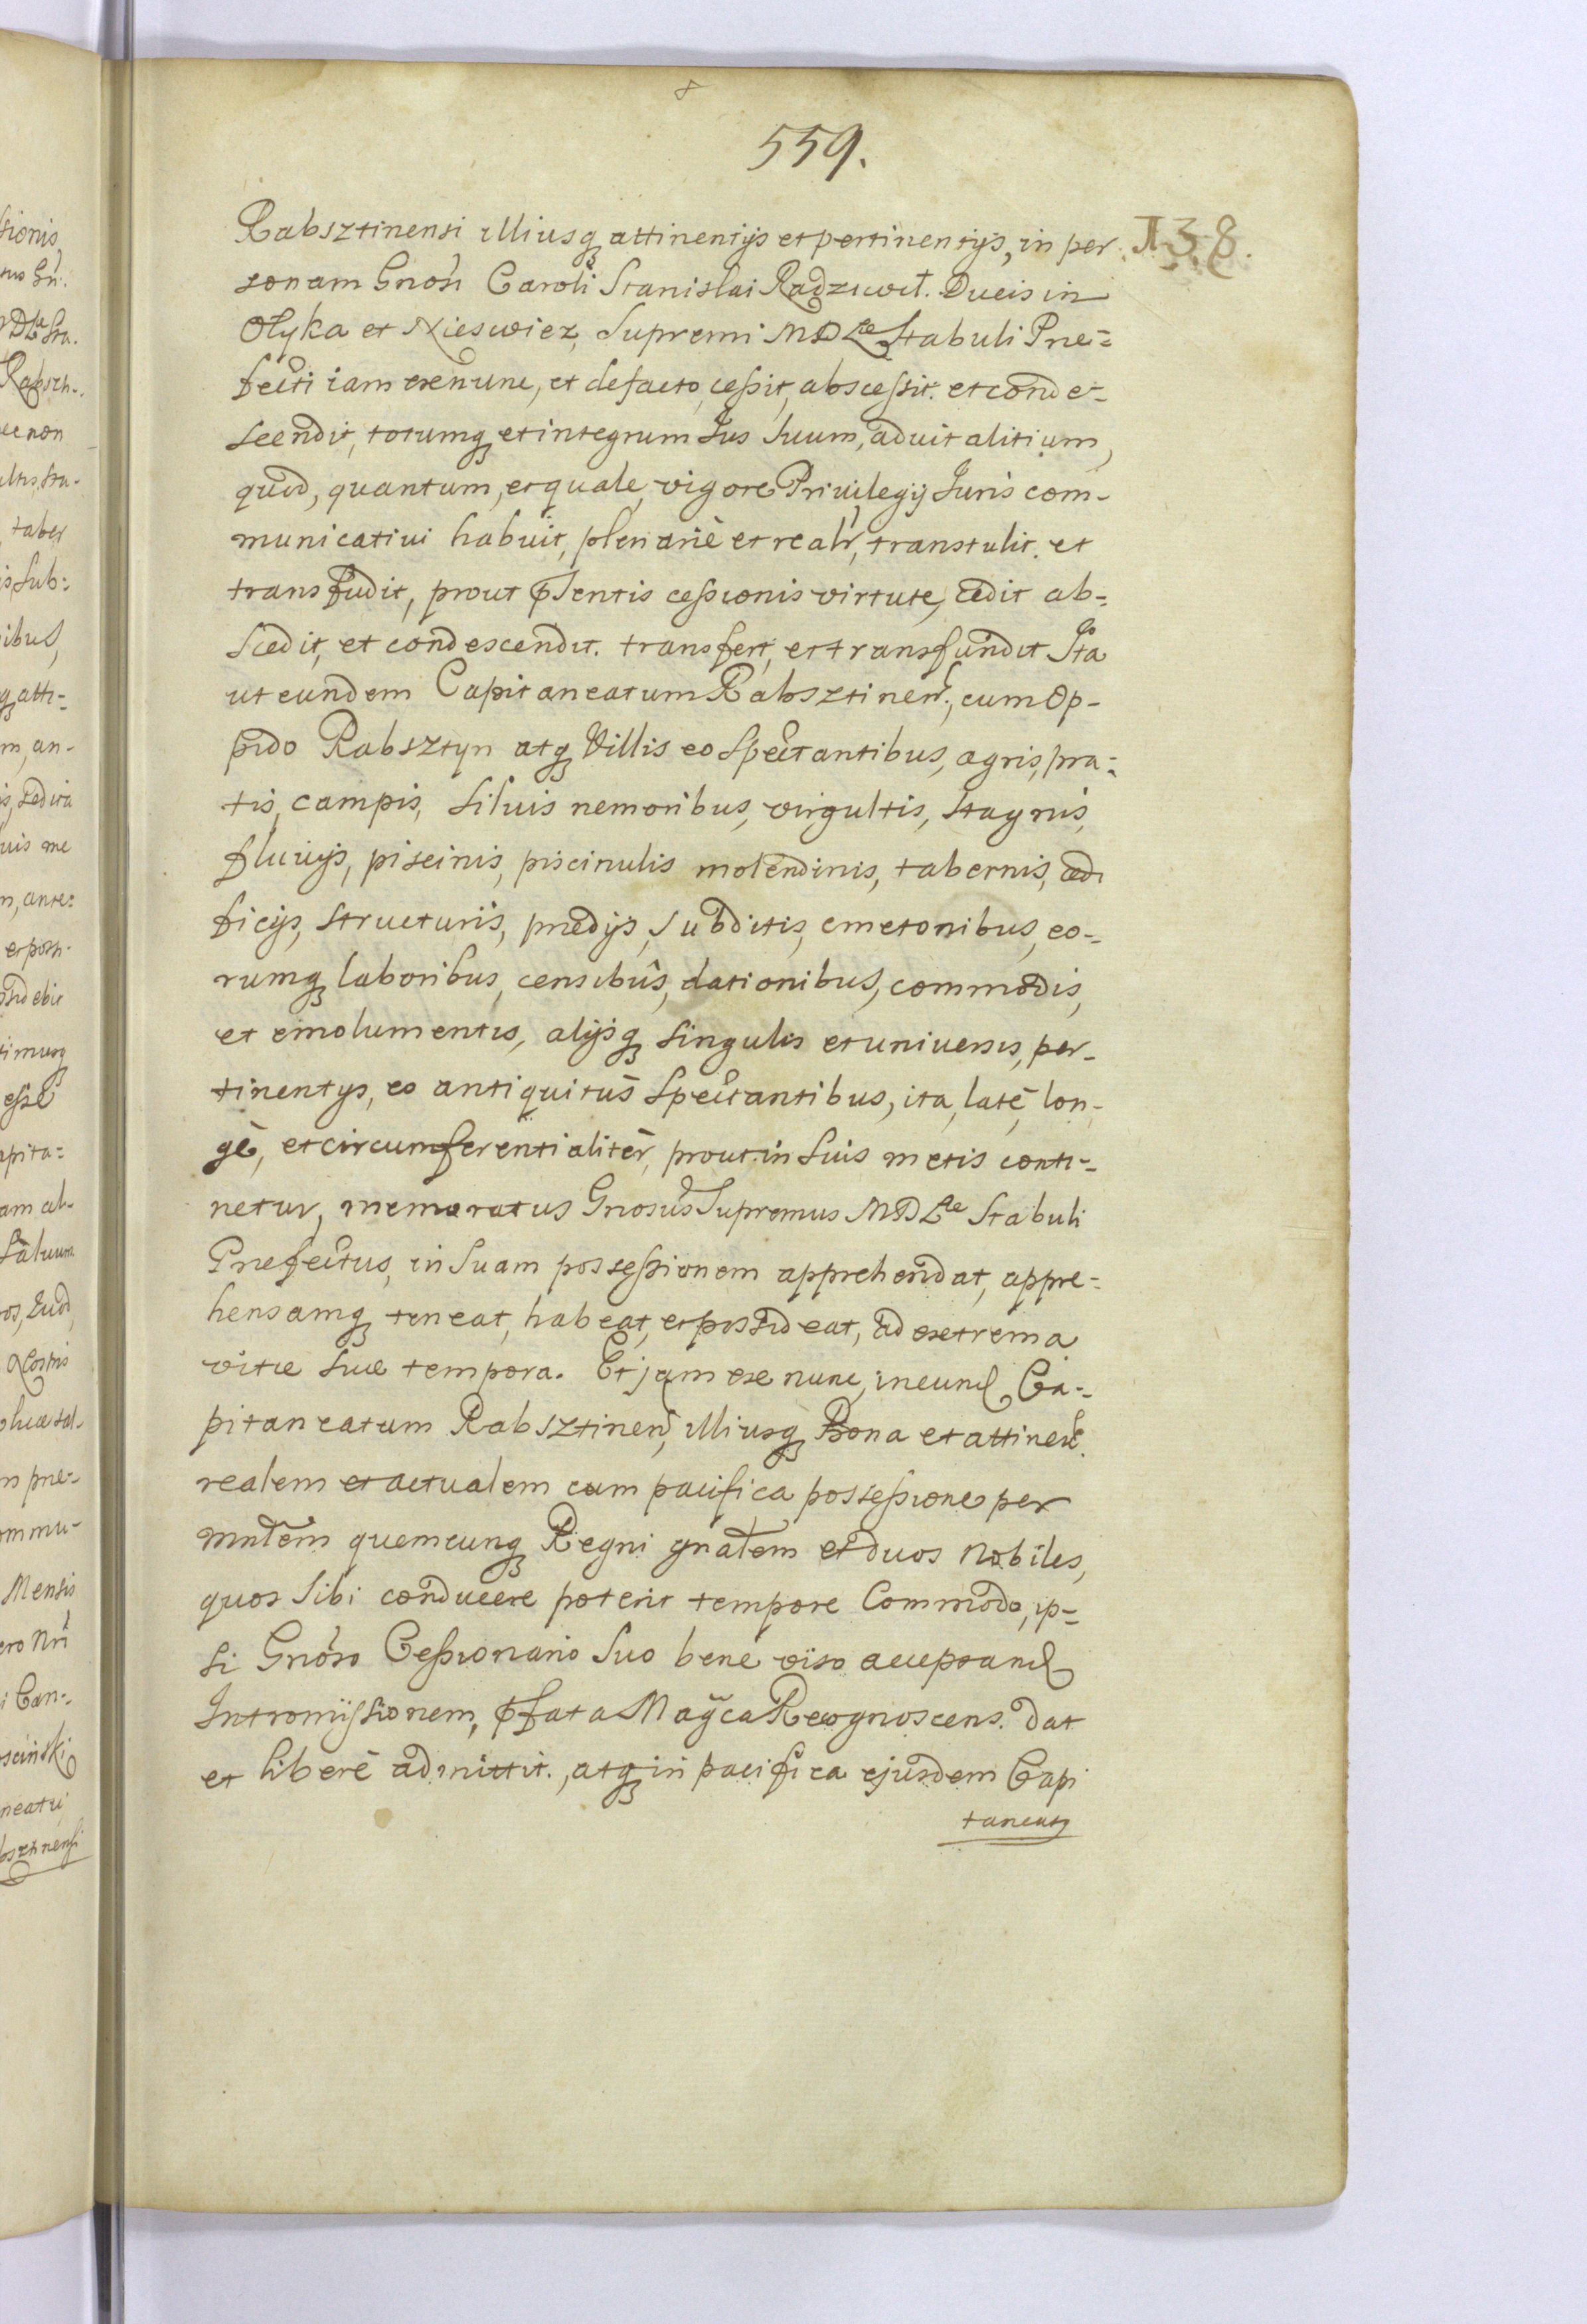 559.
138.
Rabsztinensi illiusq attinentijs et pertinentijs, in per
sonam Gnosi Caroli Stanislai Radziwił. Ducis in
Ołyka et Nieswiez, Supremi MDLae Stabuli Præ=
fecti iam exnunc, et defacto, cessit, abscessit. et conde-
scendit, totumq et integrum Ius Suum, aduitalitium,
quod, quantum, et quale, vigore Priuilegij Iuris com-
municatiui habuit, plenariè et realr, transtulit. et
transfudit, prout pñsentis cessionis virtute, cedit ab=
scedit, et condescendit. transfert, et transfundit Ita
ut eundem Capitaneatum Rabsztinen., cum Op-
pido Rabsztyn atq Villis eo Spectantibus, agris, pra-
tis, campis, siluis nemoribus, virgultis, stagnis,
fluuijs, piscinis, piscinulis molendinis, tabernis, ædi
ficijs, structuris, prædijs, Subditis, cmetonibus, eo-
rumq laboribus, censibus, dationibus, commodis,
et emolumentis, alijsq singulis et uniuersis, per-
tinentys, eo antiquitus Spectantibus, ita, latè, lon-
gè, et circumferentialitèr, prout in Suis metis conti-
netur, memoratus Gnosus Supremus MDLae Stabuli
Præfectus, in Suam possessionem apprehendat, appre-
hensamq teneat, habeat, et possideat, ad extrema
vitæ suæ tempora. Et jam ex nunc, in eund Ca-
pitaneatum Rabsztinen, illiusq Bona et attinen.
realem et actualem cum pacifica possessione per
mnlem quemcunq Regni gnalem et duos Nobiles,
quos Sibi conducere poterit tempore Commodo, ip=
si Gnoso Cessionario Suo bene viso acceptand
Intromissionem, pfata Magca Recognoscens. dat
et liberè admittit., atq in pacifica ejusdem Capi
taneatq